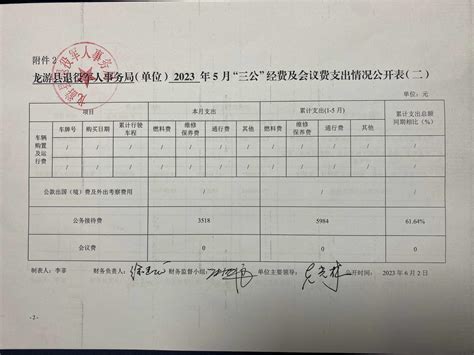 附件 2
龙游县退役军人事务局(单位)2023 年 5 月"三公"经费及会议费支出情况公开表(二)
单位:元
项目 本月支出 累计支出(1-5月) 累计支出总额同期相比(%)
车辆购置及运行费 车牌号 购买日期 累计行驶车程 燃料费 维修保养费 通行费 其他 燃料费 维修保养费 通行费 其他
/ / / / / / / / / / /
公款出国(境)费及外出考察费用 / / /
公务接待费 3518 5984 61.64%
会议费 0 0
制表:李菲 财务负责人: 财务监督小组: 单位主要领导: 公开时间: 2023 年 6 月 2 日
-2-